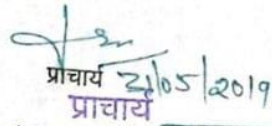 प्राचार्य 31/05/2019
प्राचार्य